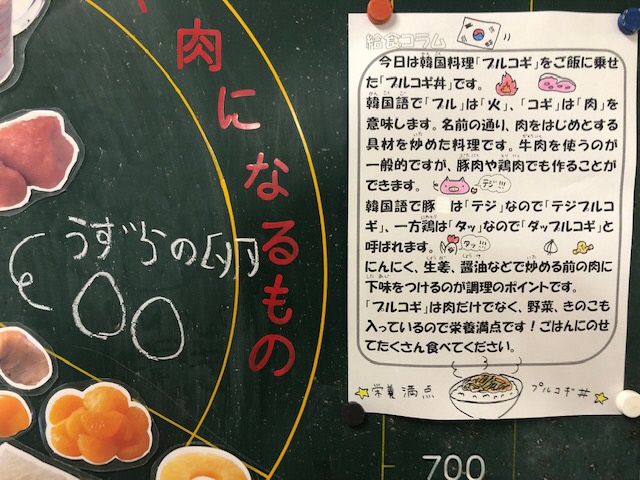 肉になるもの
うずらの卵
給食コラム
今日は韓国料理「プルコギ」をご飯に乗せ
た「プルコギ丼」です。
韓国語で「プル」は「火」、「コギ」は「肉」を
意味します。名前の通り、肉をはじめとする
具材を炒めた料理です。牛肉を使うのが
一般的ですが、豚肉や鶏肉でも作ることが
できます。
テジ!!!
韓国語で豚 は「テジ」なので「テジプルコ
ギ」、一方鶏は「タッ」なので「タップルコギ」と
呼ばれます。
タッ!!!
にんにく、生姜、醤油などで炒める前の肉に
下味をつけるのが調理のポイントです。
「プルコギ」は肉だけでなく、野菜、きのこも
入っているので栄養満点です!ごはんにのせ
てたくさん食べてください。
栄養満点
プルコギ丼
700